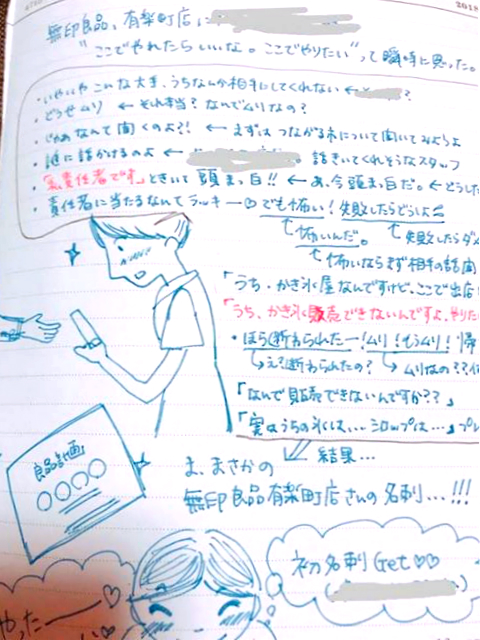 2018
無印良品、有楽町店に
"ここでやれたらいいな。ここでやりたい"って瞬時に思った。
・いやいや こんな大手、うちなんか相手にしてくれない ← ?
・どうせムリ ← それ本当? なんでムリなの?
・じゃあ なんて聞くのよ?! ← まずは つながる市について聞いてみようよ
・誰に話かけるのよ ← 話きいてくれそうなスタッフ
・「私責任者です」ときいて 頭まっ白!! ← あ、今頭まっ白だ。← どうした
・責任者に当たるなんてラッキー♡ でも怖い! 失敗したらどうしよ
怖いんだ。
失敗したらダ
怖いならまず相手の話聞
「うち、かき氷屋なんですけど、ここで出店
「うち、かき氷販売できないんですよ、やりた
・ほら断わられたー!ムリ!もうムリ! 帰
え?断わられたの? ムリなの??
「なんで販売できないんですか??」
「実はうちの氷は… シロップは…」プレ
結果…
良品計画
〇〇〇〇
ま、まさかの
無印良品有楽町店さんの名刺…!!!
初名刺Get♡♡
やったー